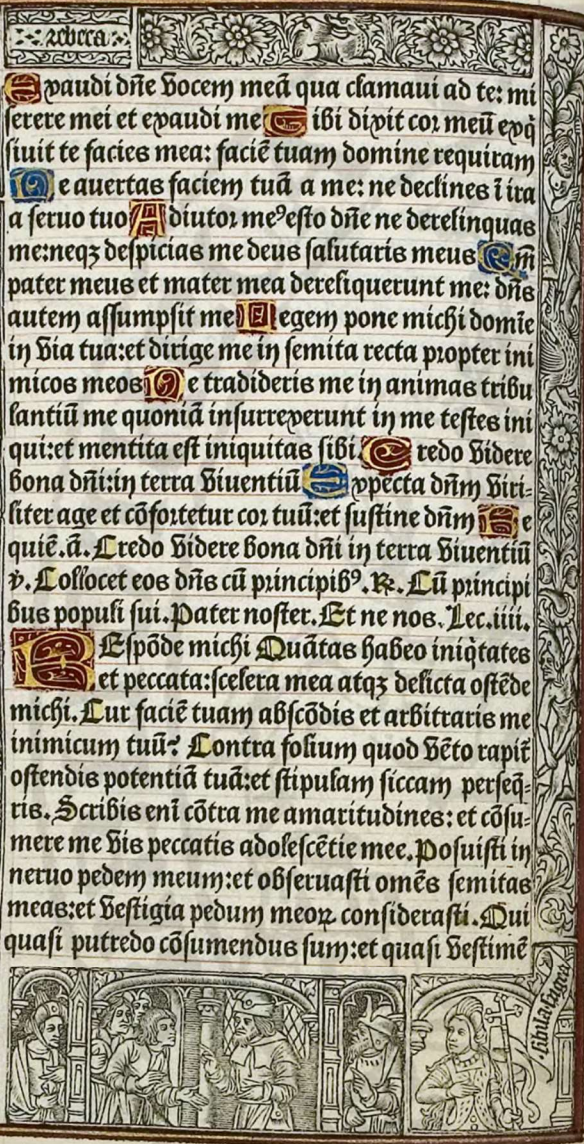 rebeca
Exaudi dñe vocem meã qua clamaui ad te: mi
serere mei et exaudi me Tibi dixit cor meũ exq̇
siuit te facies mea: faciẽ tuam domine requiram
Ne auertas faciem tuã a me: ne declines ĩ ira
a seruo tuo Adiutor meꝰ esto dñe ne derelinquas
me:neqȝ despicias me deus salutaris meus Qm̃
pater meus et mater mea dereliquerunt me: dñs
autem assumpsit me Legem pone michi domĩe
in via tua:et dirige me in semita recta propter ini
micos meos Ne tradideris me in animas tribu
lantiũ me quoniã insurrexerunt in me testes ini
qui:et mentita est iniquitas sibi. Credo videre
bona dñi:in terra viuentiũ Expecta dñm viri-
liter age et cõfortetur cor tuũ:et sustine dñm Re
quiẽ.ã. Credo videre bona dñi in terra viuentiũ
v̇. Collocet eos dñs cũ principibꝰ. ℟. Cũ principi
bus populi sui. Pater noster. Et ne nos. Lec.iiii.
REspõde michi Quãtas habeo iniq̇tates
et peccata:scelera mea atqȝ delicta ostẽde
michi. Cur faciẽ tuam abscõdis et arbitraris me
inimicum tuũ? Contra folium quod vẽto rapit̃
ostendis potentiã tuã:et stipulam siccam perseq̃-
ris. Scribis enĩ cõtra me amaritudines: et cõsu-
mere me vis peccatis adolescẽtie mee. Posuisti in
neruo pedem meum:et obseruasti omẽs semitas
meas:et vestigia pedum meoꝝ considerasti. Qui
quasi putredo cõsumendus sum:et quasi vestimẽ